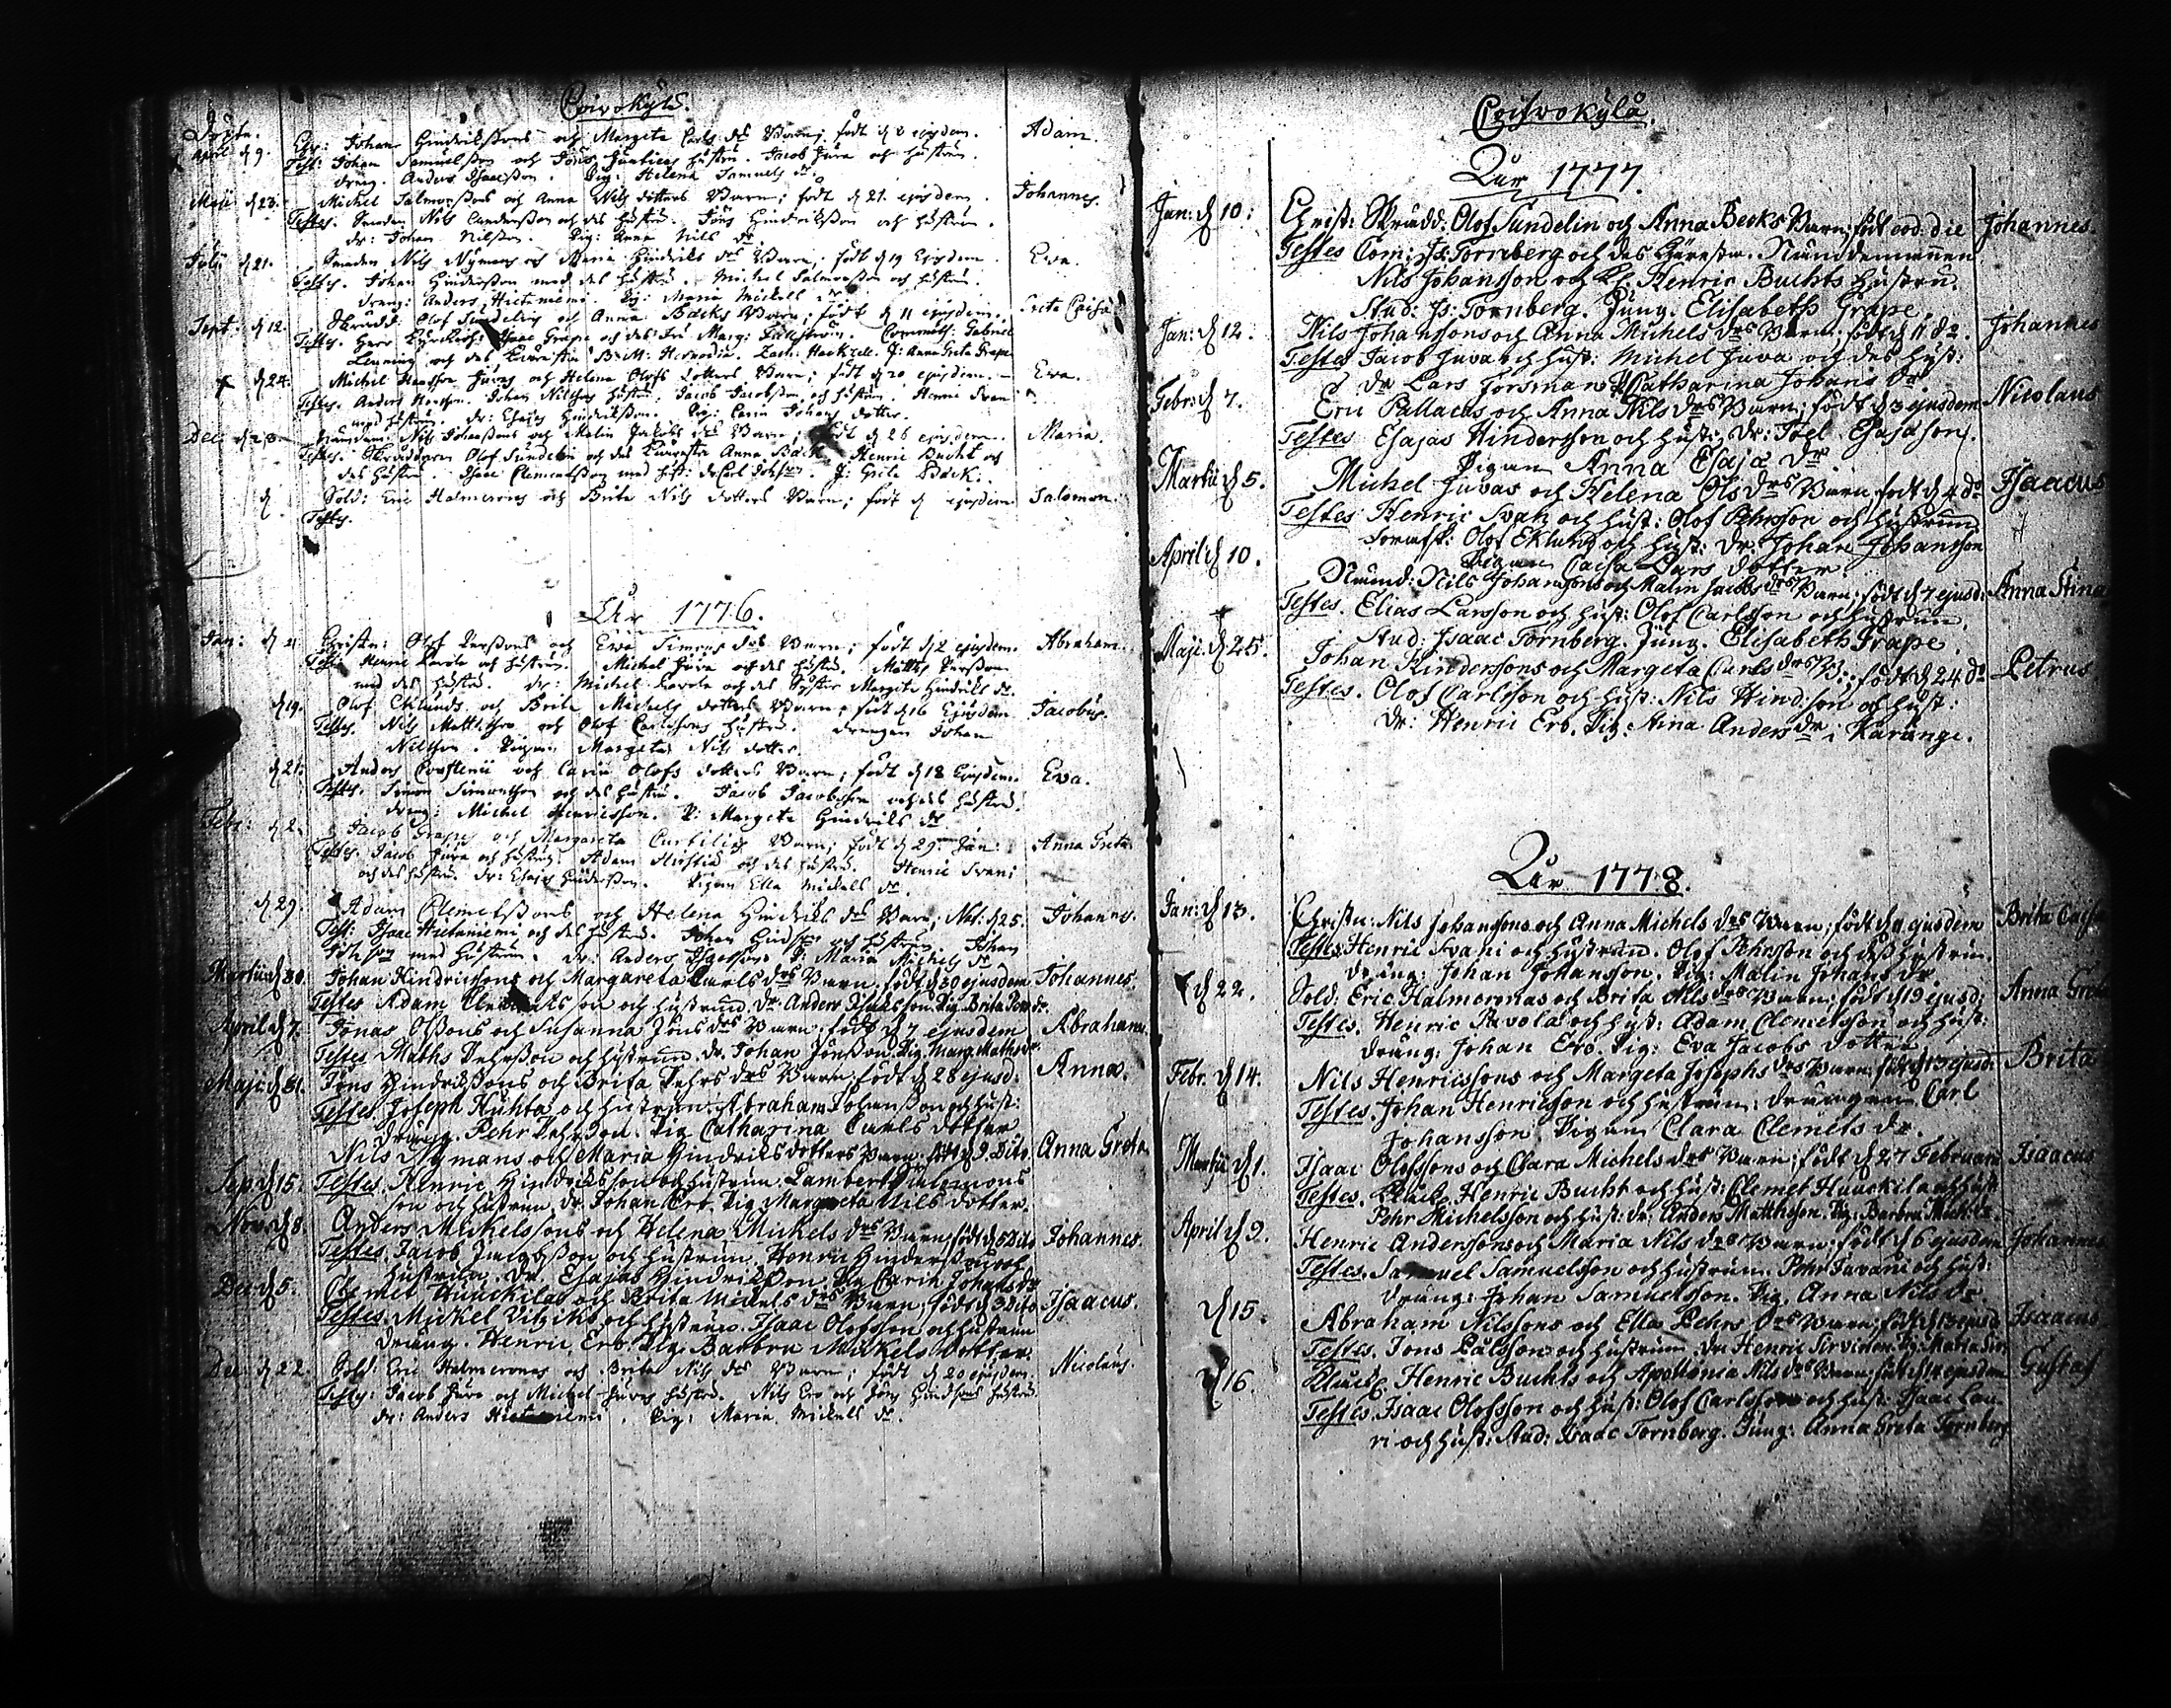 Coivokylä.
Döpte.
April d 9. Chr: Johan Hindrikssons och Margeta Carls drs Barn; född d 8 ejusdem. Adam.
Test: Johan Samuelsson och Jöns hustru. Jacob Juva och hustrun.
dräng. Anders Isacsson. Pig: Helena Samuels dr
Maii d 23. Michel Salmonssons och Anna Nils dotters Barn; född d 21. ejusdem. Johannes.
Testes. Smeden Nils Andersson och des hustru. Jöns Hindriksson och hustrun.
dr: Johan Nilsson. Pig: Anna Nils dr.
Julij d 21. Smeden Nils Nymans och Maria Hindriks drs Barn; född d 19 Ejusdem. Eva.
Testes. Johan Hindersson med des hustru. Michel Salmonsson och hustrun.
dräng: Anders Hietaniemi. Pig: Maria Mickels dr
Sept: d 12. Skrædd: Olof Sundelins och Anna Bäcks Barn; född d 11 ejusdem. Greta Caisa
Testes. Herr Kyrckoh: Isaac Grape och des Fru Marg: Fallström. Comminist: Gabriel
Lenning och des Kiæresta Britt: Hernodia. Zach: Hackzell. J: Anna Greta Grape
d 24. Michel Hansson Juvas och Helena Olofs dotters Barn; född d 20 ejusdem. Eva.
Testes. Anders Hansson. Johan Nilssons hustru. Jacob Jacobsson och hustrun. Henric Ivan
med hustrun. dr: Esajas Hindriksson. Pig: Carin Johans dotter.
Dec: d 28 Nämdem: Nils Johanssons och Malin Jacobs drs Barn; född d 26 ejusdem. Maria.
Testes. Skræddaren Olof Sundelin och des Kiæresta Anna Bäck. Henric Bucht och
des hustru. Isaac Clemetsson med hust: dr Carl Johsson. J: Greta Bäck.
d Sold: Eric Halmeronas och Brita Nils dotters Barn; född d ejusdem. Salomon.
Testes.
År 1776.
Jan: d Christn: Olof Perssons och Eva Simons drs Barn; född d 2 ejusdem. Abraham.
Testes Henric Pavola och hustrun. Michel Juva och des hustru. Matths Persson
med des hustru. dr: Michel Pavola och des Syster Margeta Hindriks dr.
d 19. Olof Eklunds och Brita Michels dotters Barn; född d 16 Ejusdem. Jacobus.
Testes. Nils Matthsson och Olof Carlssons hustru. drengen Johan
Nilsson. Pigan Margeta Nils dotter.
d 21. Anders och Carin Olofs dotters Barn; född d 18 Ejusdem. Eva.
Testes. Simon Simonsson och des hustru. Jacob Jacobsson och des hustru.
dräng: Michel Henricsson. P: Margeta Hindriks dr
Febr: d 2. Jacob Grapes och Margareta Curtilias Barn; född d 29. Jan: Anna Greta.
Testes. Jacob Juva och hustru. Adam och des hustru. Henric Ivani
och des hustru. dr: Esajas Hindersson. Pigan Ella Mickels dr.
d 29. Adam Clemetssons och Helena Hindriks drs Barn; Nat: d 25. Johannes.
Test: Isaac Hietaniemi och des hustru. Johan Hindsson och hustrun. Johan
med hustrun. dr: Anders Isacsson. P: Maria Michels dr.
Martii d 30. Johan Hindrichsons och Margareta Carls drs Barn. född d 30 ejusdem Johannes.
Testes Adam Clemetsson och hustrun. Dr. Anders Isacsson. Pig. Brita
April d 7. Jonas Olssons och Susanna Jöns drs Barn. född d 7 ejusdem Abraham.
Testes Maths Pehrsson och hustrun. dr. Johan Jönsson. Pig. Marg. Maths dr.
Maji d 31. Jöns Hindrikssons och Brita Pehrs drs Barn född d 28 ejusd: Anna.
Testes Joseph Huhta och hustrun. Abraham Johansson och hust:
dräng. Pehr Pehrsson. Pig Catharina Carls dotter
Sep d 15. Nils Nymans och Maria Hindriks dotters Barn. född d 9. Dito Anna Greta
Testes. Henric Hindricsson och hustrun. Lambert Salmons
son och hustrun. dr. Johan Ero. Pig. Margeta Nils dotter.
Nov: d 8. Anders Mickelssons och Helena Mickels drs Barn, född d 5 Dito Johannes.
Testes. Jacob Jacobsson och hustrun. Henric Hindersson och
hustrun. Dr. Esajas Hindricsson. Pig Carin Johans dr
Dec d 5. Clemet Hauckilas och Brita Mickels drs Barn, född d 3 Dito Isaacus.
Testes. Mickel och hustrun. Isaac Olofsson och hustrun
Dräng. Henric Ero. Pig. Barbru Mickels dotter.
Dec d 22 Sold: Eric Halmeronas och Brita Nils drs Barn; född d 20 ejusdem. Nicolaus.
Testes: Jacob Juva och Michel Juvas hustru. Nils Ero och Jöns Hindssons hustru
dr: Anders Hietaniemi. Pig: Maria Mickels dr.
Coifvokylä.
År 1777.
Jan: d 10: Christ: Skrædd: Olof Sundelin och Anna Becks Barn, född eod. die Johannes.
Testes Com: Is: Tornberg och des Kiæresta. Nämndemannen
Nils Johansson och Kl. Henric Buchts Hustru.
Stud: Is: Tornberg. Jung. Elisabeth Grape.
Jan: d 12. Nils Johanssons och Anna Michels drs Barn. född d 11 do. Johannes
Testes Jacob Juva och hust: Michel Juva och des hust:
dr Lars Forsman P. Catharina Johans dr.
Febr: d 7. Eric Pallaris och Anna Nils drs Barn; född d 3 ejusdem Nicolaus
Testes Esajas Hindersson och hust: Dr: Joel Esajasson.
Pigan Anna Esaja dr
Martii d 5. Michel Juvas och Helena Ols drs Barn, född d 4 do Isaacus
Testes Henric Ivan och hust: Olof Pehrsson och hustrun
Olof Eklund och hust: dr: Johan Johansson
Pigan Caisa Lars dotter
April d 10. Nämnd: Nils Johanssons och Malin Jacobs drs Barn; född d 7 ejusd: Anna Stina
Testes. Elias Larsson och hust: Olof Carlsson och hustrun.
Stud: Isaac Tornberg. Jung. Elisabeth Grape.
Maji d 25. Johan Hinderssons och Margeta Carls drs B:; född d 24 do Petrus
Testes. Olof Carlsson och hust: Nils Hind:son och hust:
dr: Henric Ero. Pig: Anna Anders dr i Karungi.
År 1778.
Jan: d 13. Christn: Nils Johanssons och Anna Michels drs Barn; född d 11 ejusdem Brita Caisa
Testes Henric Ivani och hustrun. Olof Pehrsson och dess hustrun.
dräng: Johan Johansson. Pig: Malin Johans dr.
d 22. Sold: Eric Halmeronas och Brita Nils drs Barn; född d 19 ejusd: Anna Greta
Testes. Henric Pavola och hust: Adam Clemetsson och hust:
dräng: Johan Ero. Pig: Eva Jacobs dotter
Febr. d 14. Nils Henricssons och Margeta Josephs drs Barn. född d 13 ejusd: Brita
Testes. Johan Henricsson och hustrun: drängen Carl
Johansson. Pigan Clara Clemets dr.
Martii d 1. Isaac Olofssons och Clara Michels drs Barn; född d 27 Februarii Isaacus
Testes. Klock. Henric Bucht och hust: Clemet Hauckila och hust:
Pehr Michelsson och hust: dr: Anders Matthsson. Pig: Barbru Mich: dr
April d 9. Henric Anderssons och Maria Nils drs Barn; född d 6 ejusdem Johannes
Testes. Samuel Samuelsson och hustrun. Pehr Juvani och hust:
dräng: Johan Samuelsson. Pig. Anna Nils dr
d 15. Abraham Nilssons och Ella Pehrs drs Barn; född d 13 ejusd Isaacus
Testes. Jöns Pålsson och hustrun. dr: Henric Pig. Maria
d 16. Klock. Henric Buchts och Apollonia Nils drs Barn; född d 14 ejusdem Gustaf
Testes. Isaac Olofsson och hust: Olof Carlsson och hust: Isaac Lau-
ri och hust: Stud: Isaac Tornberg. Jung: Anna Greta Tornberg